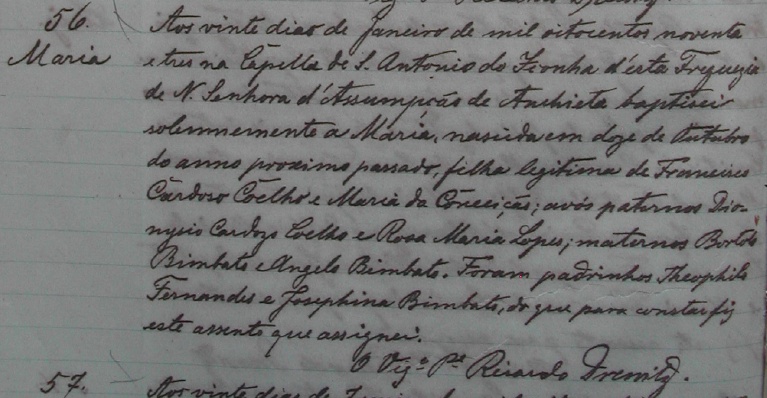 56.
Maria
Aos vinte dias de Janeiro de mil oitocentos noventa
e tres na Capella de S. Antonio do Iconha d'esta Freguezia
de N. Senhora d'Assumpção de Anchieta baptisei
solemnemente a Maria, nascida em doze de Outubro
do anno proximo passado, filha legitima de Francisco
Cardoso Coelho e Maria da Conceição; avós paternos Dio-
nysio Cardozo Coelho e Rosa Maria Lopes; maternos Bortolo
Bimbato e Angela Bimbato. Foram padrinhos Theophilo
Fernandes e Josephina Bimbato, do que para constar fiz
este assento que assignei.
O Vigº Pe Ricardo
57.
Aos vinte dias de